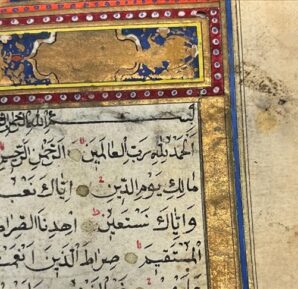 بسم الله الرحمن الرحيم
الحمد لله رب العالمين الرحمن الرحيم
مالك يوم الدين اياك نعبد
واياك نستعين اهدنا الصراط
المستقيم صراط الذين انعمت